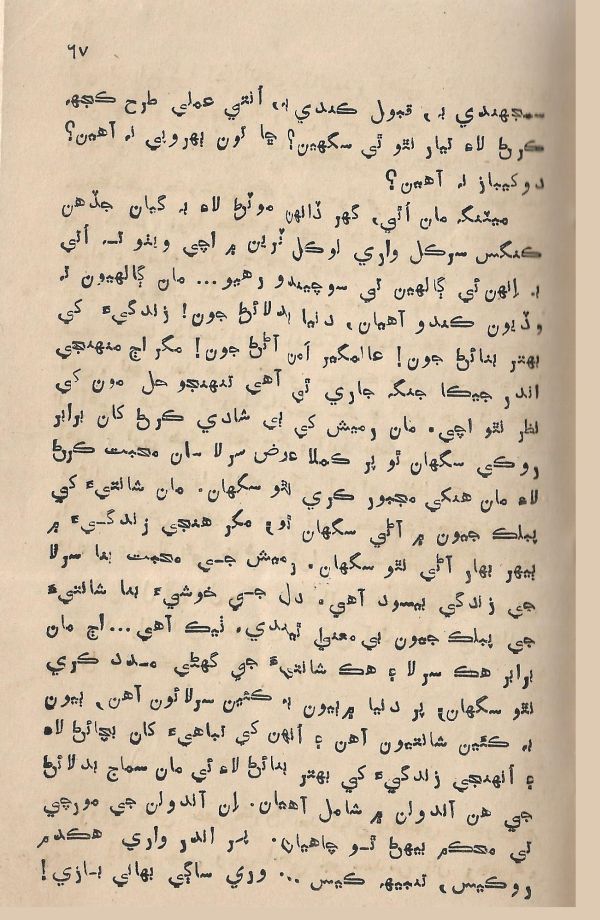 ٦٧
سمجهندي به، قبول ڪندي به، اُنتي عملي طرح ڪجهه
ڪرڻ لاءِ تيار نٿو ٿي سگهين؟ ڇا تون بهروپي نه آهين؟
دوکيباز نه آهين؟
ميٽنگ مان اُٿي، گهر ڏانهن موٽڻ لاءِ به گيان جڏهن
ڪنگس سرڪل واري لوڪل ٽرين ۾ اچي ويٺو تہ اُتي
به اِنهن ئي ڳالهين تي سوچيندو رهيو... مان ڳالهيون ته
وڏيون ڪندو آهيان، دنيا بدلائڻ جون! زندگيءَ کي
بهتر بنائڻ جون! عالمگير اَمن آڻڻ جون! مگر اڄ منهنجي
اندر جيڪا جنگ جاري ئي آهي تنهنجو حل مون کي
نظر نٿو اچي. مان رميش کي ٻي شادي ڪرڻ کان برابر
روڪي سگهان ٿو پر ڪملا عرض سرلا سان محبت ڪرڻ
لاءِ مان هنکي مجبور ڪري نٿو سگهان. مان شانتيءَ کي
پبلڪ جيون ۾ آڻي سگهان ٿو، مگر هنجي زندگيءَ ۾
ٻيهر بهار آڻي نٿو سگهان. رميش جي محبت بنا سرلا
جي زندگي بيسود آهي. دل جي خوشيءَ بنا شانتيءَ
جي پبلڪ جيون بي معنيٰ ٿيندي. ٺيڪ آهي... اڄ مان
برابر هڪ سرلا ۽ هڪ شانتيءَ جي گهڻي مدد ڪري
نٿو سگهان، پر دنيا ۾ ٻيون به ڪئين سرلائون آهن، ٻيون
به ڪئين شانتيون آهن ۽ اُنهن کي تباهيءَ کان بچائڻ لاءِ
۽ اُنهنجي زندگيءَ کي بهتر بنائڻ لاءِ ئي مان سماج بدلائڻ
جي هن آندولن ۾ شامل آهيان. اِن آندولن جي مورچي
تي محڪم بيهڻ ٿو چاهيان. پر اندر واري هڪدم
روڪيس، تنبيهه ڪيس ... وري ساڳي بهاني بازي!